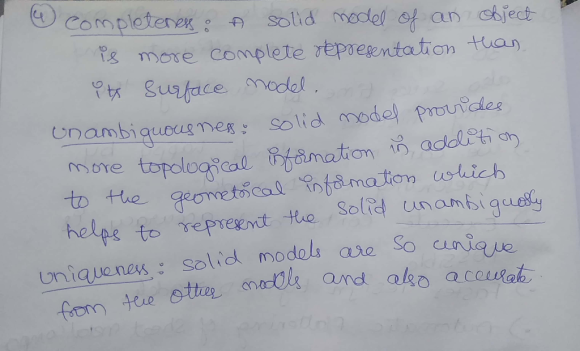 ④ Completeness : A solid model of an object
is more complete representation than
its Surface model.
Unambiguousness : solid model provides
more topological information in addition
to the geometrical information which
helps to represent the solid unambiguously
Uniqueness : solid models are so unique
from the other models and also accurate